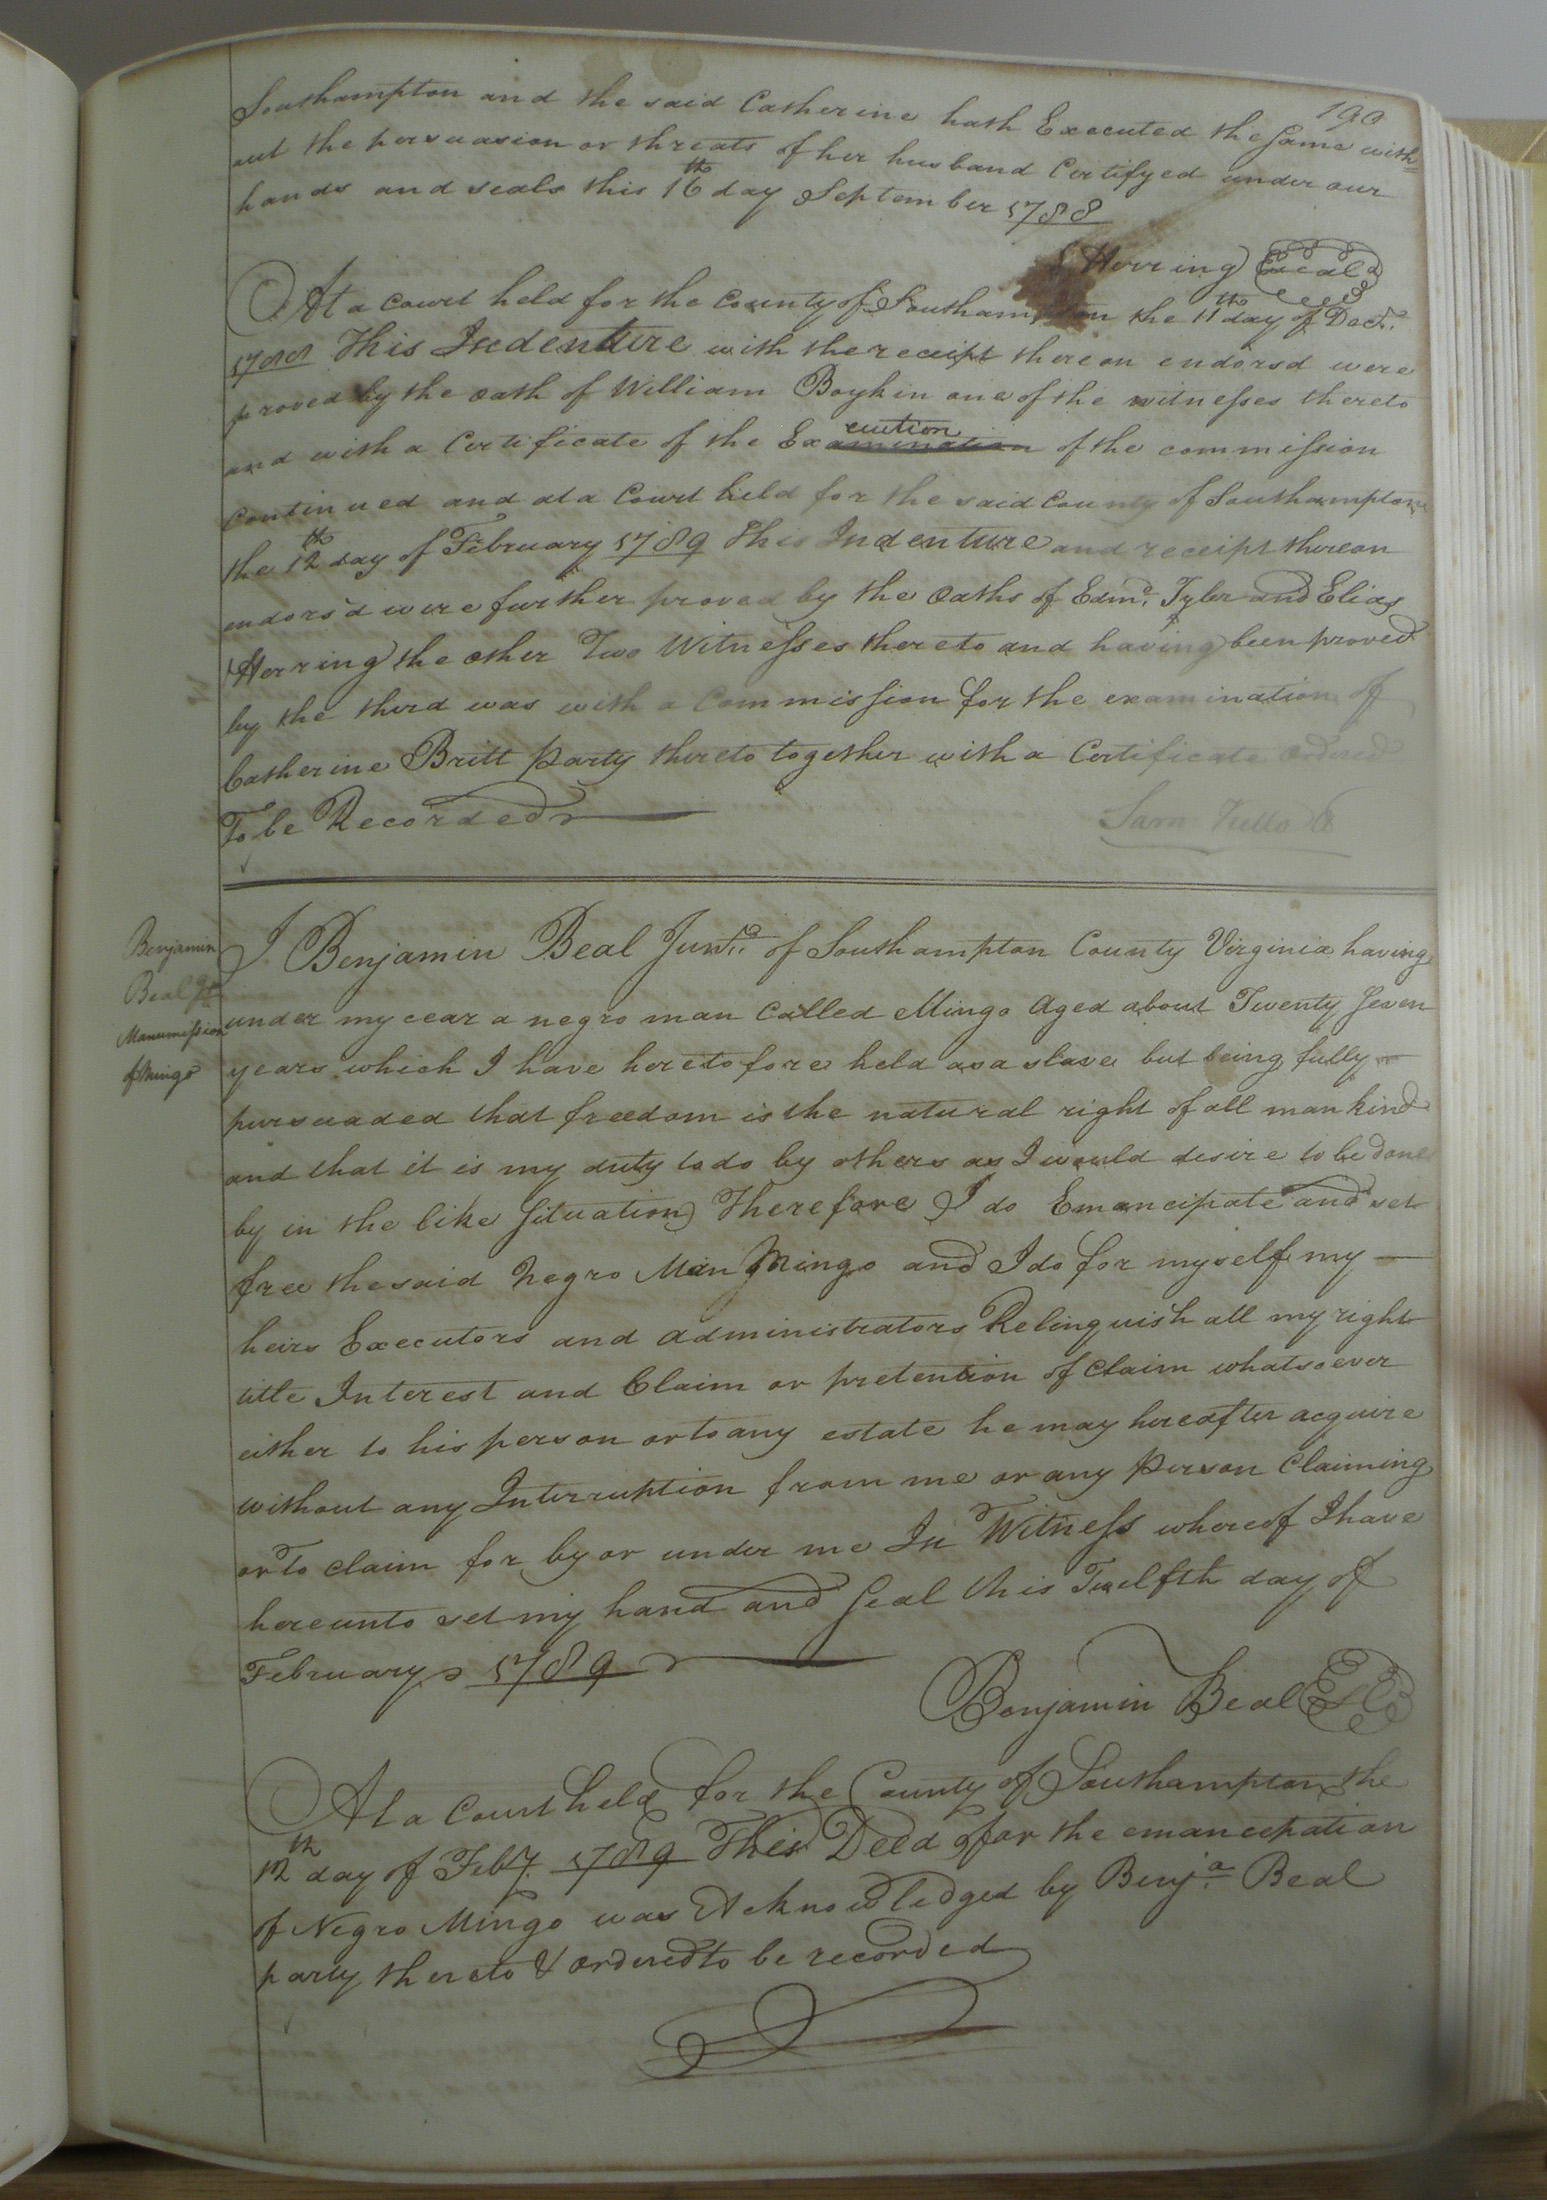 190
Southampton and the said Catherine hath Executed the Same with
out the persuasion or threats of her husband Certifyed under our
hands and seals this 16th day September 1788
Herring Seal
At a Court held for the County of Southampton the 11th day of Decr.
1788 This Indenture with the receipt thereon endorsd were
proved by the oath of William Boykin one of the witnesses thereto
and with a Certificate of the Examination ecution of the commission
Continued and at a Court held for the said County of Southampton
the 12th day of February 1789 This Indenture and receipt thereon
endors'd were further proved by the Oaths of Edmd. Tyler and Elias
Herring the other Two Witnesses thereto and having been proved
by the third was with a Commission for the examination of
Catherine Britt party thereto together with a Certificate Ordered
To be Recorded
Sam Kello C
Benjamin
Beal Jr
Manumission
of Mingo
I Benjamin Beal Junr. of Southampton County Virginia having
under my cear a negro man Called Mingo Aged about Twenty Seven
years which I have heretofore held as a slave but being fully
pursuaded that freedom is the natural right of all mankind
and that it is my duty to do by others as I would desire to be done
by in the like Situation Therefore I do Emancipate and set
free the said Negro Man Mingo and I do for myself my
heirs Executors and administrators Relinquish all my right
title Interest and Claim or pretention of Claim whatsoever
either to his person or to any estate he may hereafter acquire
without any Interruption from me or any Person Claiming
or To claim for by or under me In Witness whereof I have
hereunto set my hand and Seal this Twelfth day of
February 1789
Benjamin Beal
At a Court held for the County of Southampton the
12th day of Feby. 1789 This Deed for the emancipation
of Negro Mingo was Acknowledged by Benja. Beal
party thereto & ordered to be recorded